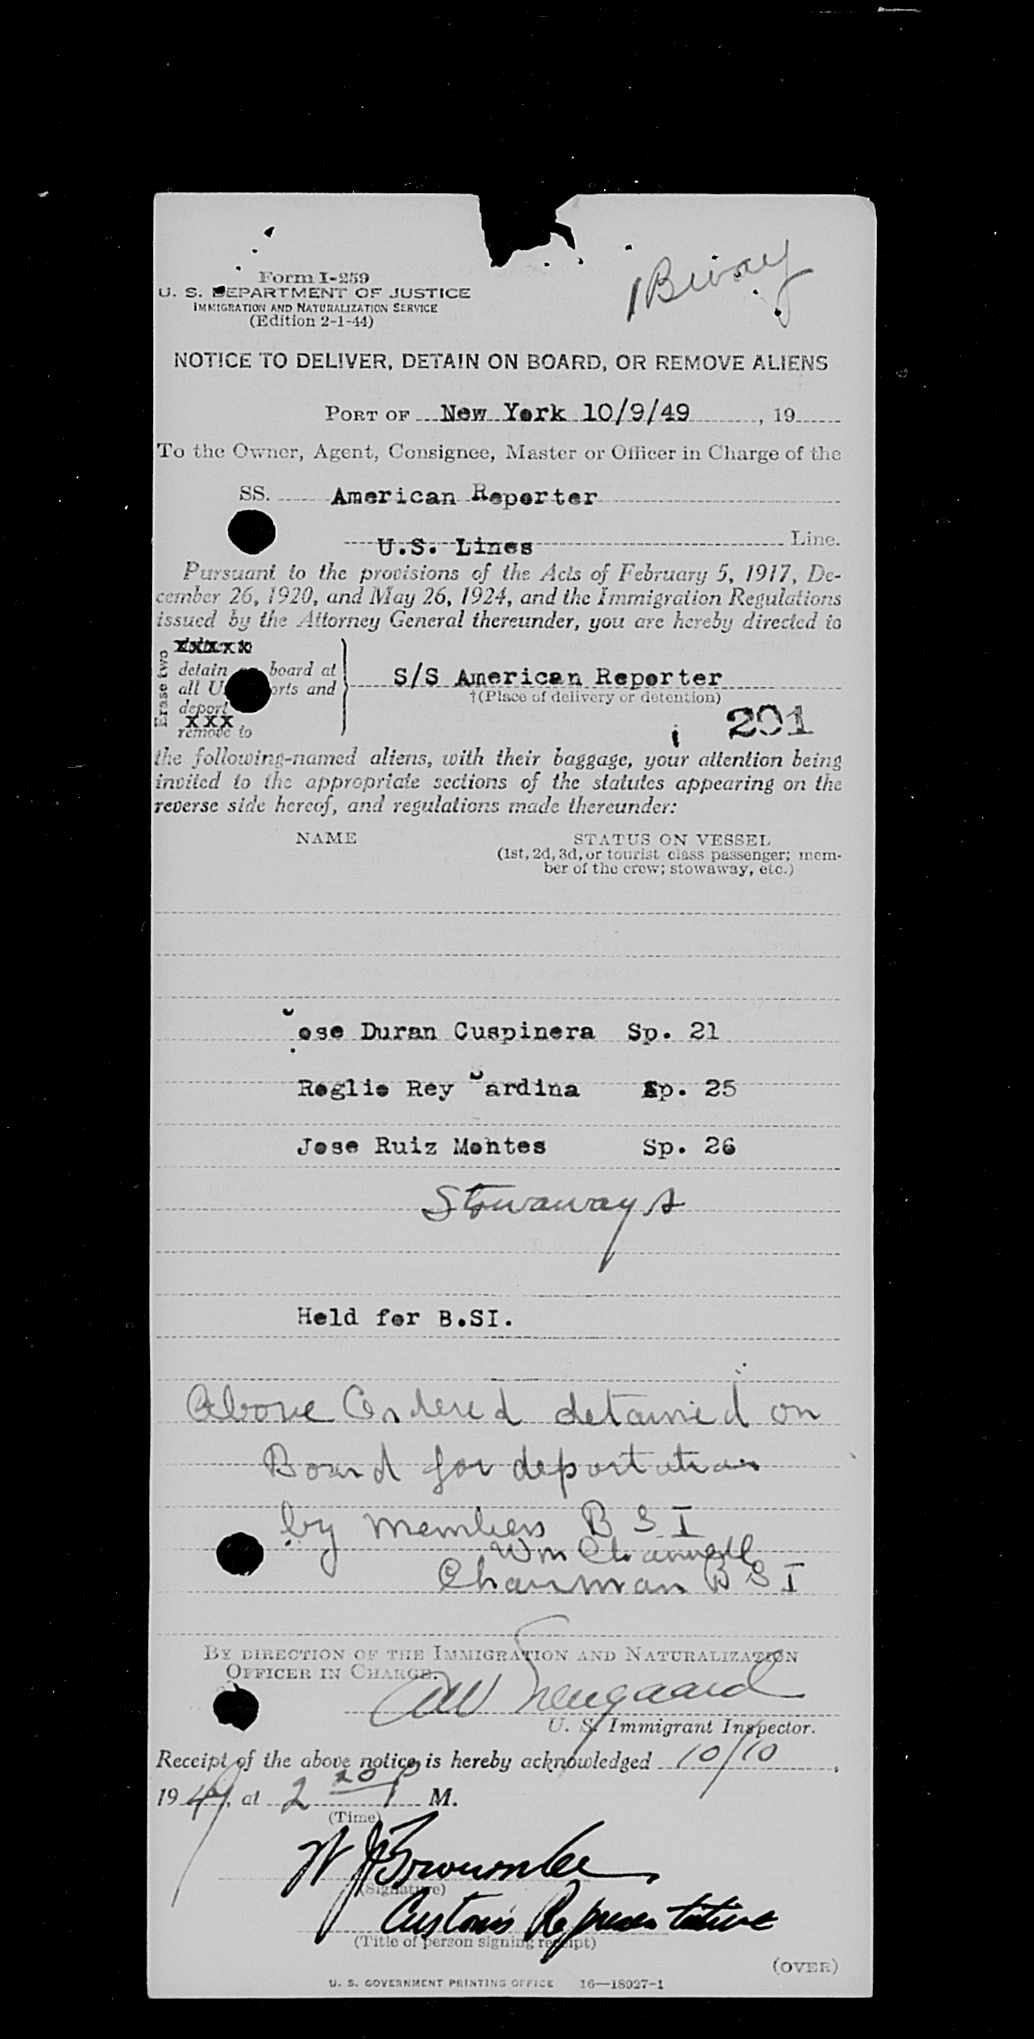 Form I-259
U. S. DEPARTMENT OF JUSTICE
IMMIGRATION AND NATURALIZATION SERVICE
(Edition 2-1-44)
NOTICE TO DELIVER, DETAIN ON BOARD, OR REMOVE ALIENS
PORT OF New York 10/9/49, 19
To the Owner, Agent, Consignee, Master or Officer in Charge of the
SS. American Reporter
U.S. Lines Line.
Pursuant to the provisions of the Acts of February 5, 1917, De-
cember 26, 1920, and May 26, 1924, and the Immigration Regulations
issued by the Attorney General thereunder, you are hereby directed to
Erase two
xxxxx
detain board at
all U orts and
deport
xxx
remove to
S/S American Reporter
†(Place of delivery or detention)
201
the following-named aliens, with their baggage, your attention being
invited to the appropriate sections of the statutes appearing on the
reverse side hereof, and regulations made thereunder:
NAME STATUS ON VESSEL
(1st, 2d, 3d, or tourist class passenger; mem-
ber of the crew; stowaway, etc.)
Jose Duran Cuspinera Sp. 21
Roglio Rey Jardina Sp. 25
Jose Ruiz Montes Sp. 26
Stowaways
Held for B.SI.
Above Ordered detained on
Board for deportation
by members B S I
Wm
Chairman B S I
BY DIRECTION OF THE IMMIGRATION AND NATURALIZATION
OFFICER IN CHARGE.
U. S. Immigrant Inspector.
Receipt of the above notice is hereby acknowledged 10/10,
1949, at 2 20 P M.
(Time)
W J Brownlee
(Signature)
Customs Representative
(Title of person signing receipt)
(OVER)
U. S. GOVERNMENT PRINTING OFFICE 16—18927-1